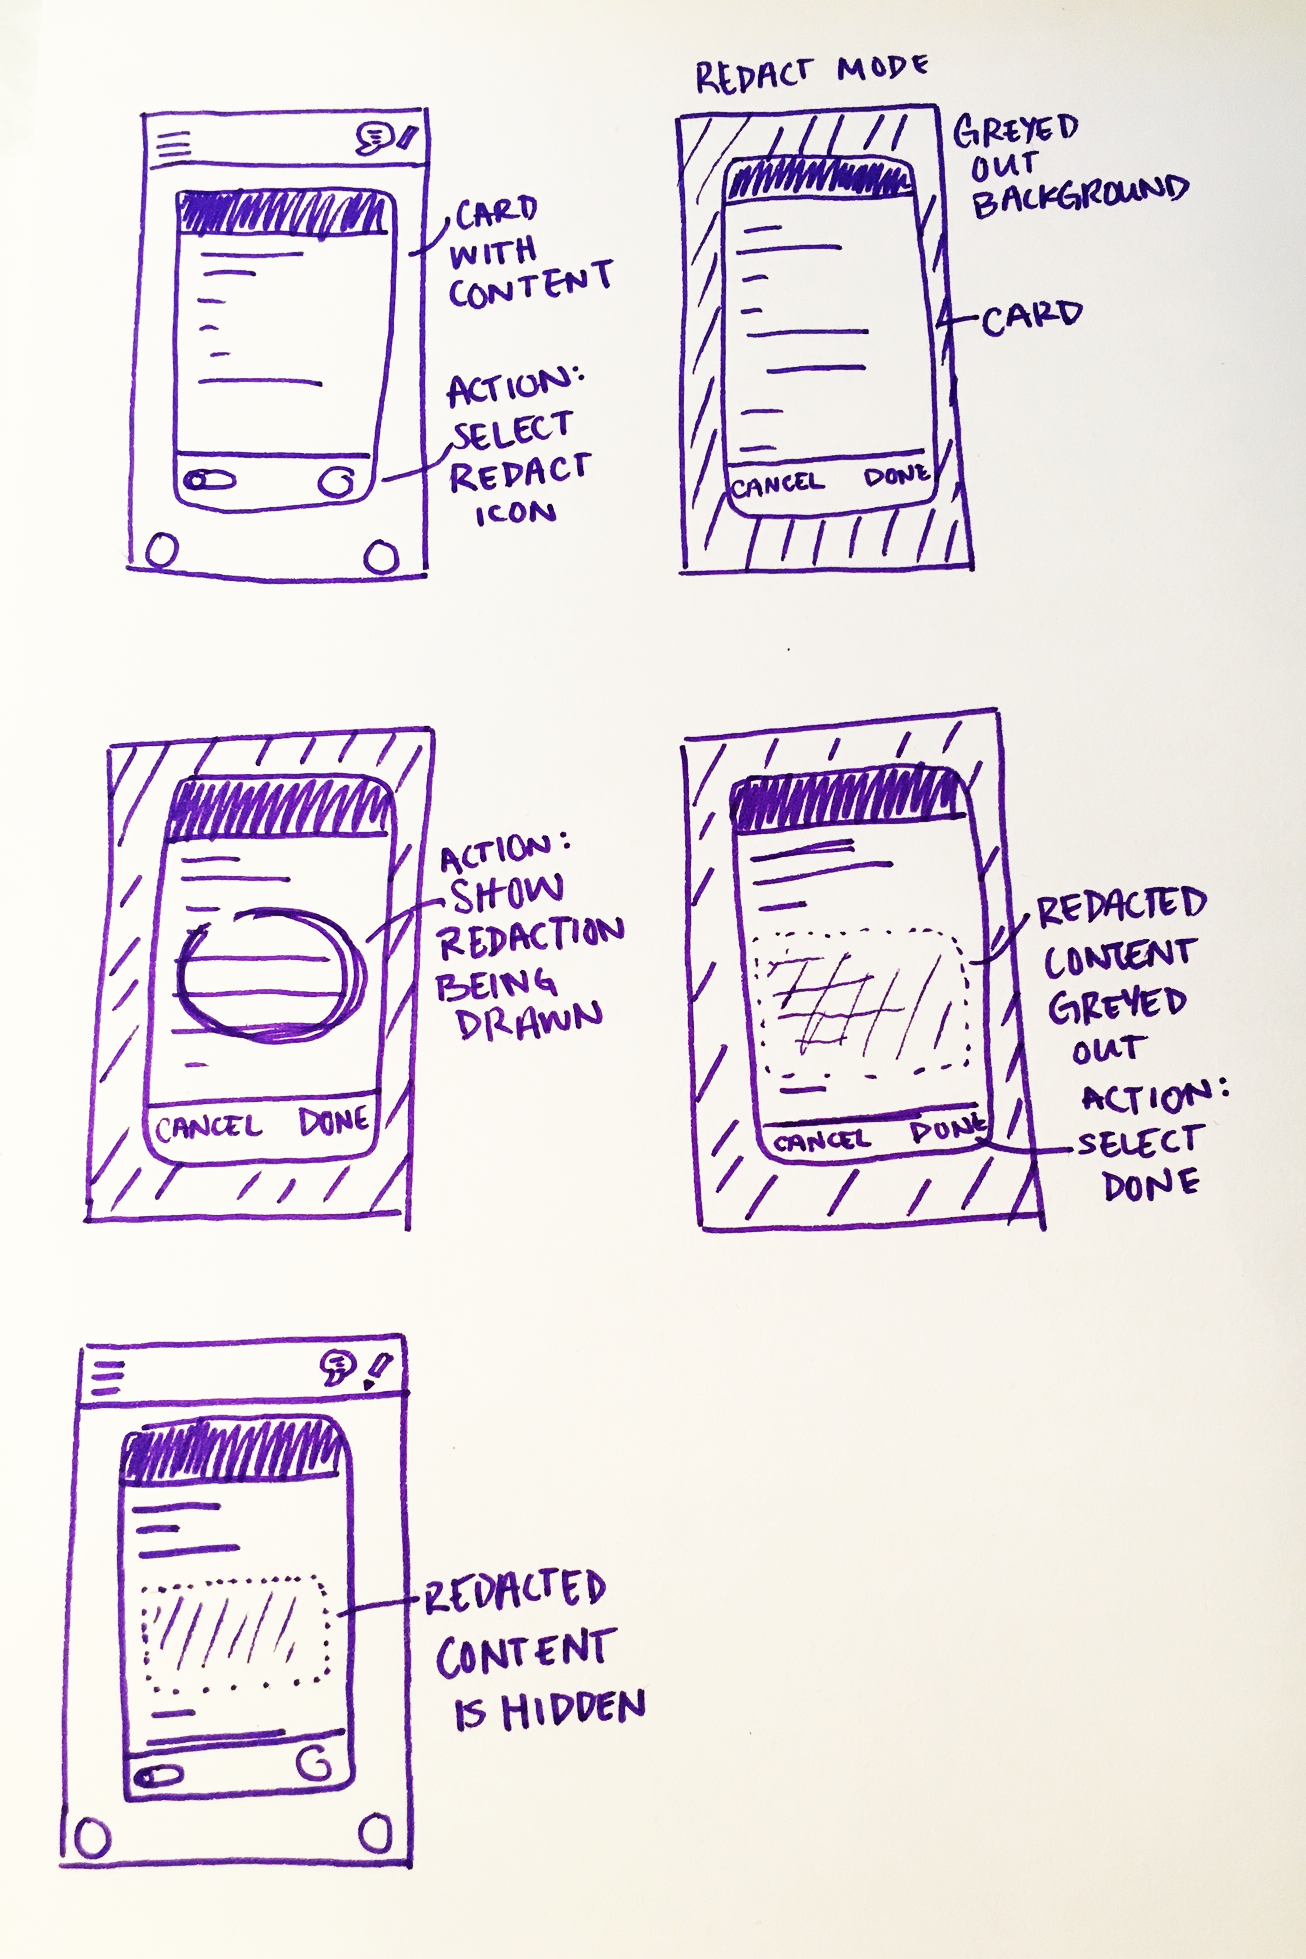 CARD
WITH
CONTENT
ACTION:
SELECT
REDACT
ICON
REDACT MODE
GREYED
OUT
BACKGROUND
CARD
CANCEL DONE
ACTION:
SHOW
REDACTION
BEING
DRAWN
CANCEL DONE
REDACTED
CONTENT
GREYED
OUT
ACTION:
SELECT
DONE
CANCEL DONE
REDACTED
CONTENT
IS HIDDEN